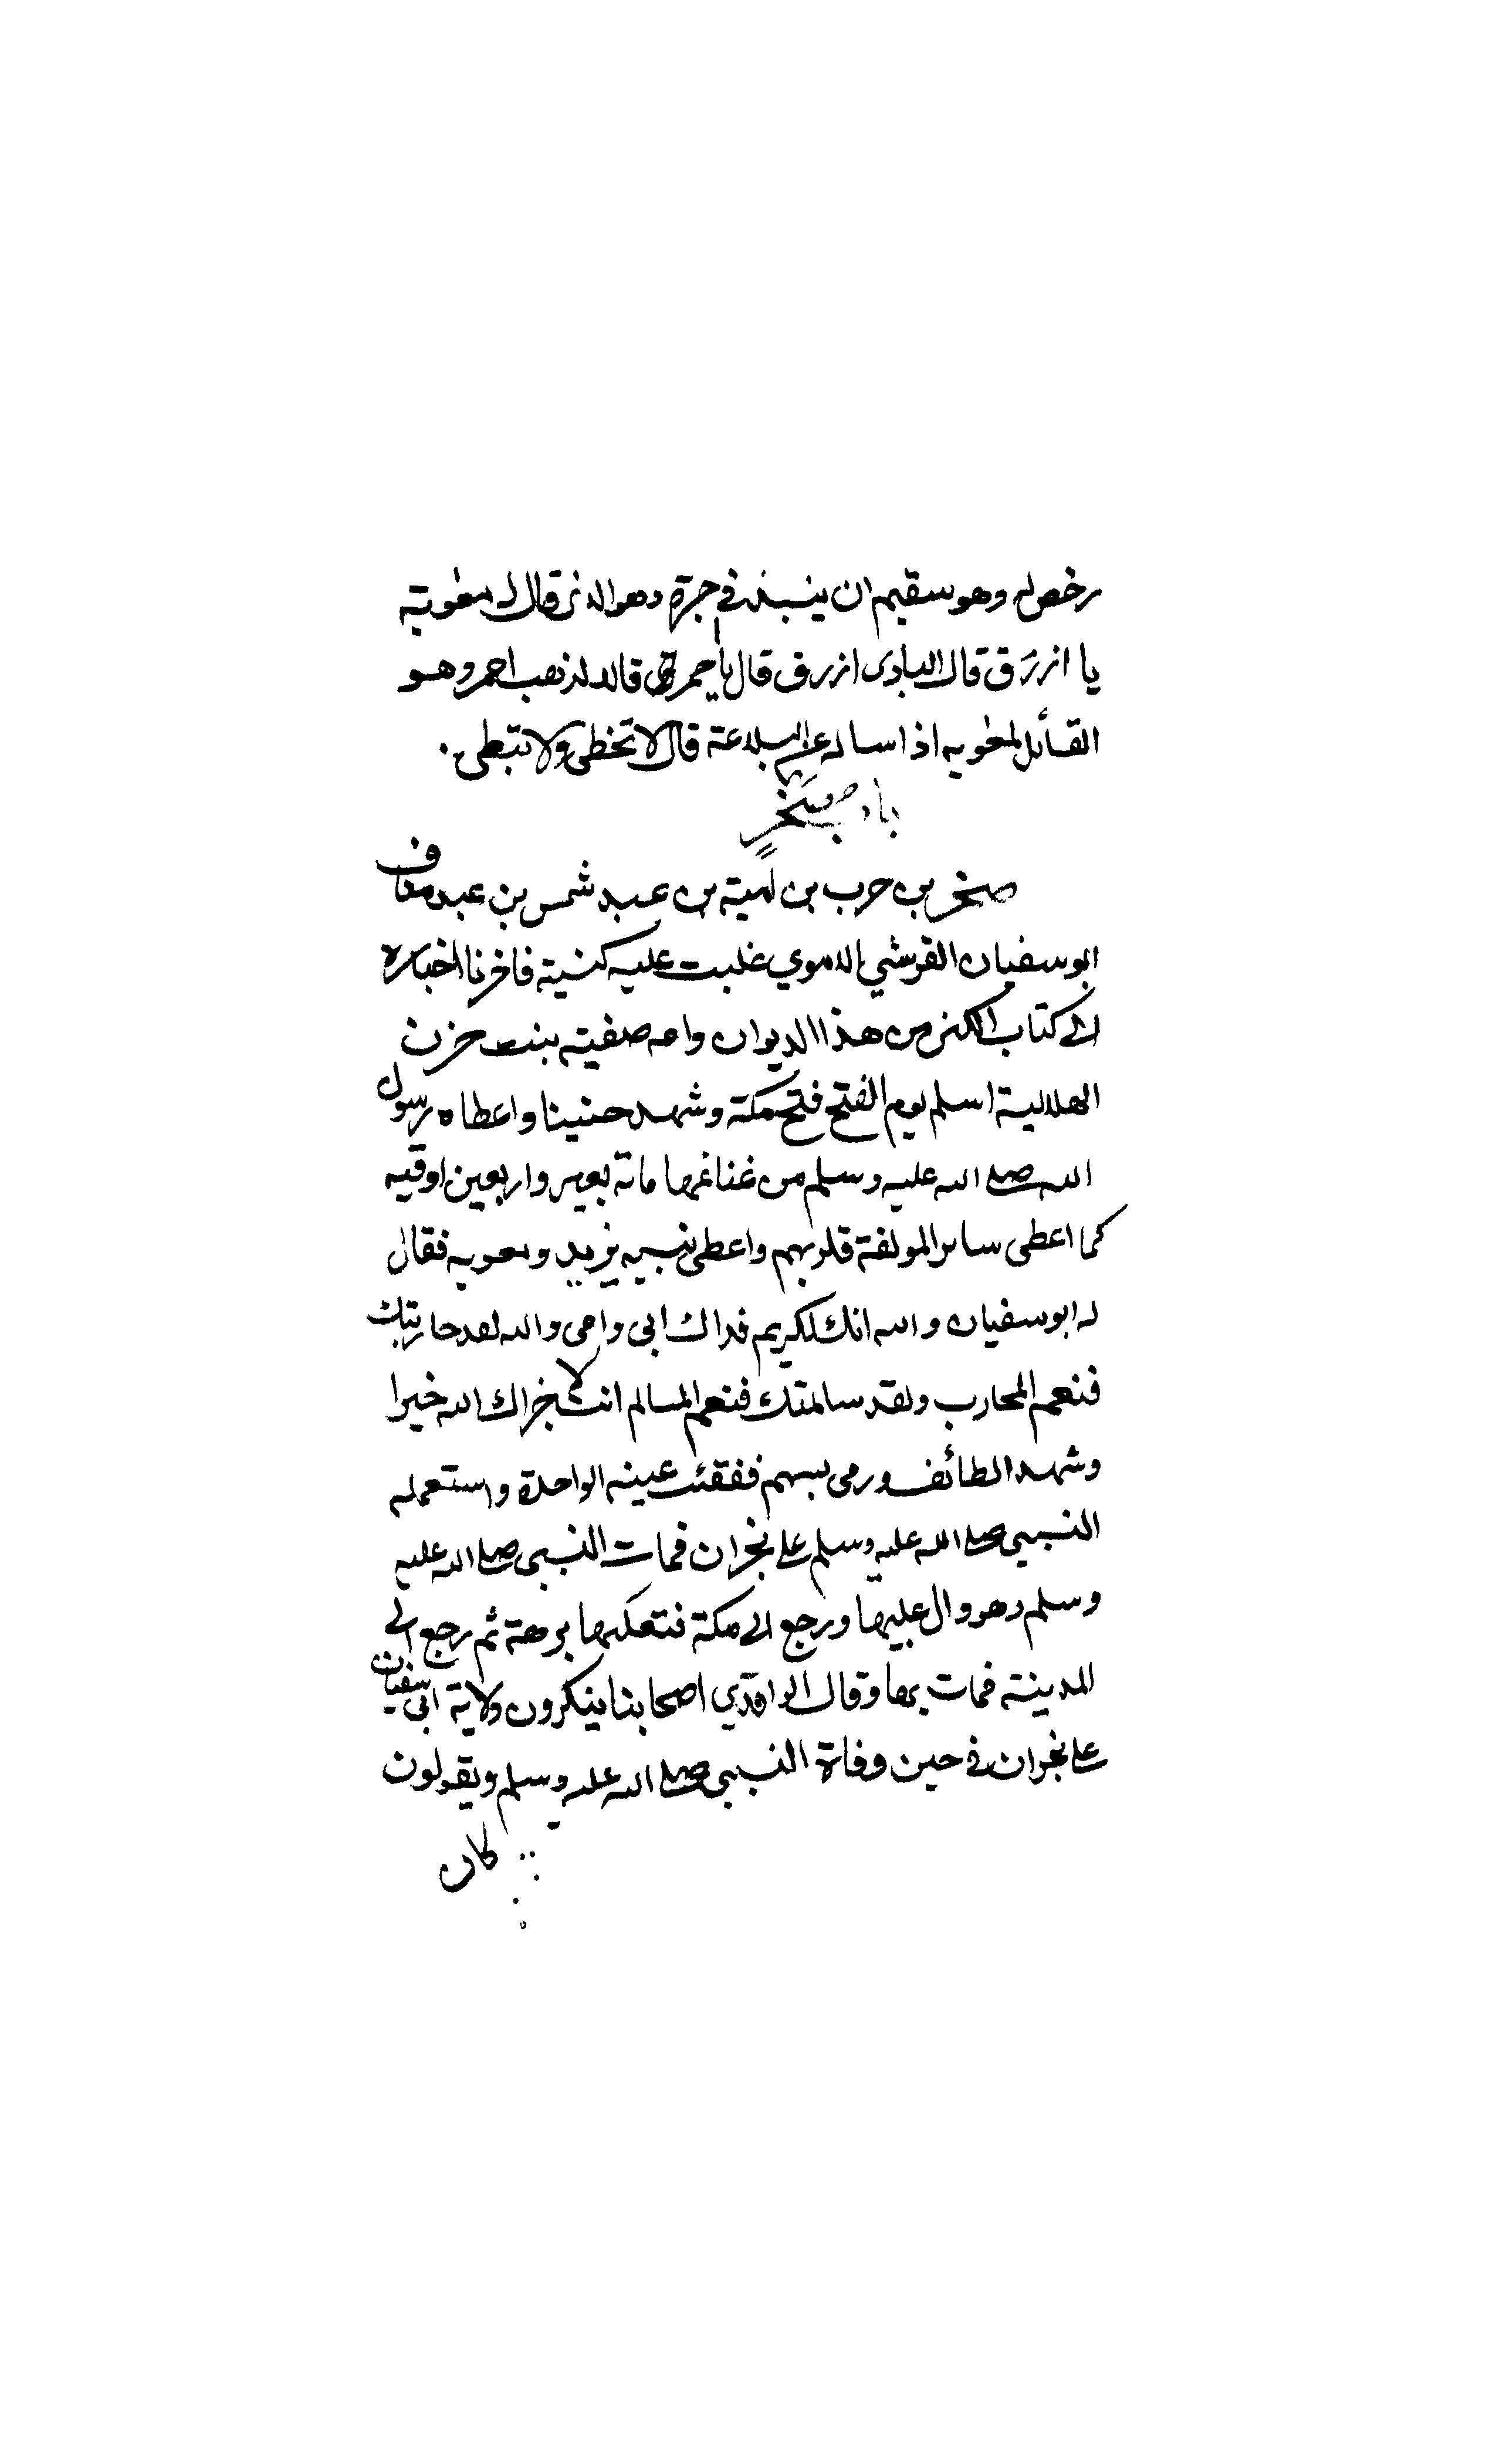 رخص له وهو سقيم ان ينبذ في جرة وهو الذى قال له معوية
يا ازرق قال البازى ازرق قال يا احمر قال الذهب احمر وهو
القائل لمعويه اذا ساله عن البلاغة قال لا تخطى ولا تبطى .
باب صخر
صخر بن حرب بن امية بن عبد شمس بن عبد مناف
ابو سفيان القرشي الاموي غلبت عليه كنيته فاخرنا اخباره
الى كتاب الكنى من هذا الديوان وامه صفيته بنت حزن
الهلالية اسلم يوم الفتح فتح مكة وشهد حنينا واعطاه رسول
الله صلى الله عليه وسلم من غنائمها ماتة بعير واربعين اوقيه
كما اعطى ساير المولفة قلوبهم واعطى بنيه يزيد ومعويه فقال
له ابو سفيان والله انك لكريم فداك ابى وامى والله لقد حاربتك
فنعم المحارب ولقد سالمتك فنعم المسالم انت جزاك الله خيرا
وشهد الطائف ورمى بسهم ففقئت عينه الواحدة واستعمله
النبي صلى الله عليه وسلم على نجران فمات النبى صلى الله عليه
وسلم وهو وال عليها ورجع الى مكة فسكنها برهة ثم رجع الى
المدينة فمات بها وقال الواقدي اصحابنا ينكرون ولاية ابى سفيان
على نجران في حين وفاة النبى صلى الله عليه وسلم ويقولون
كان